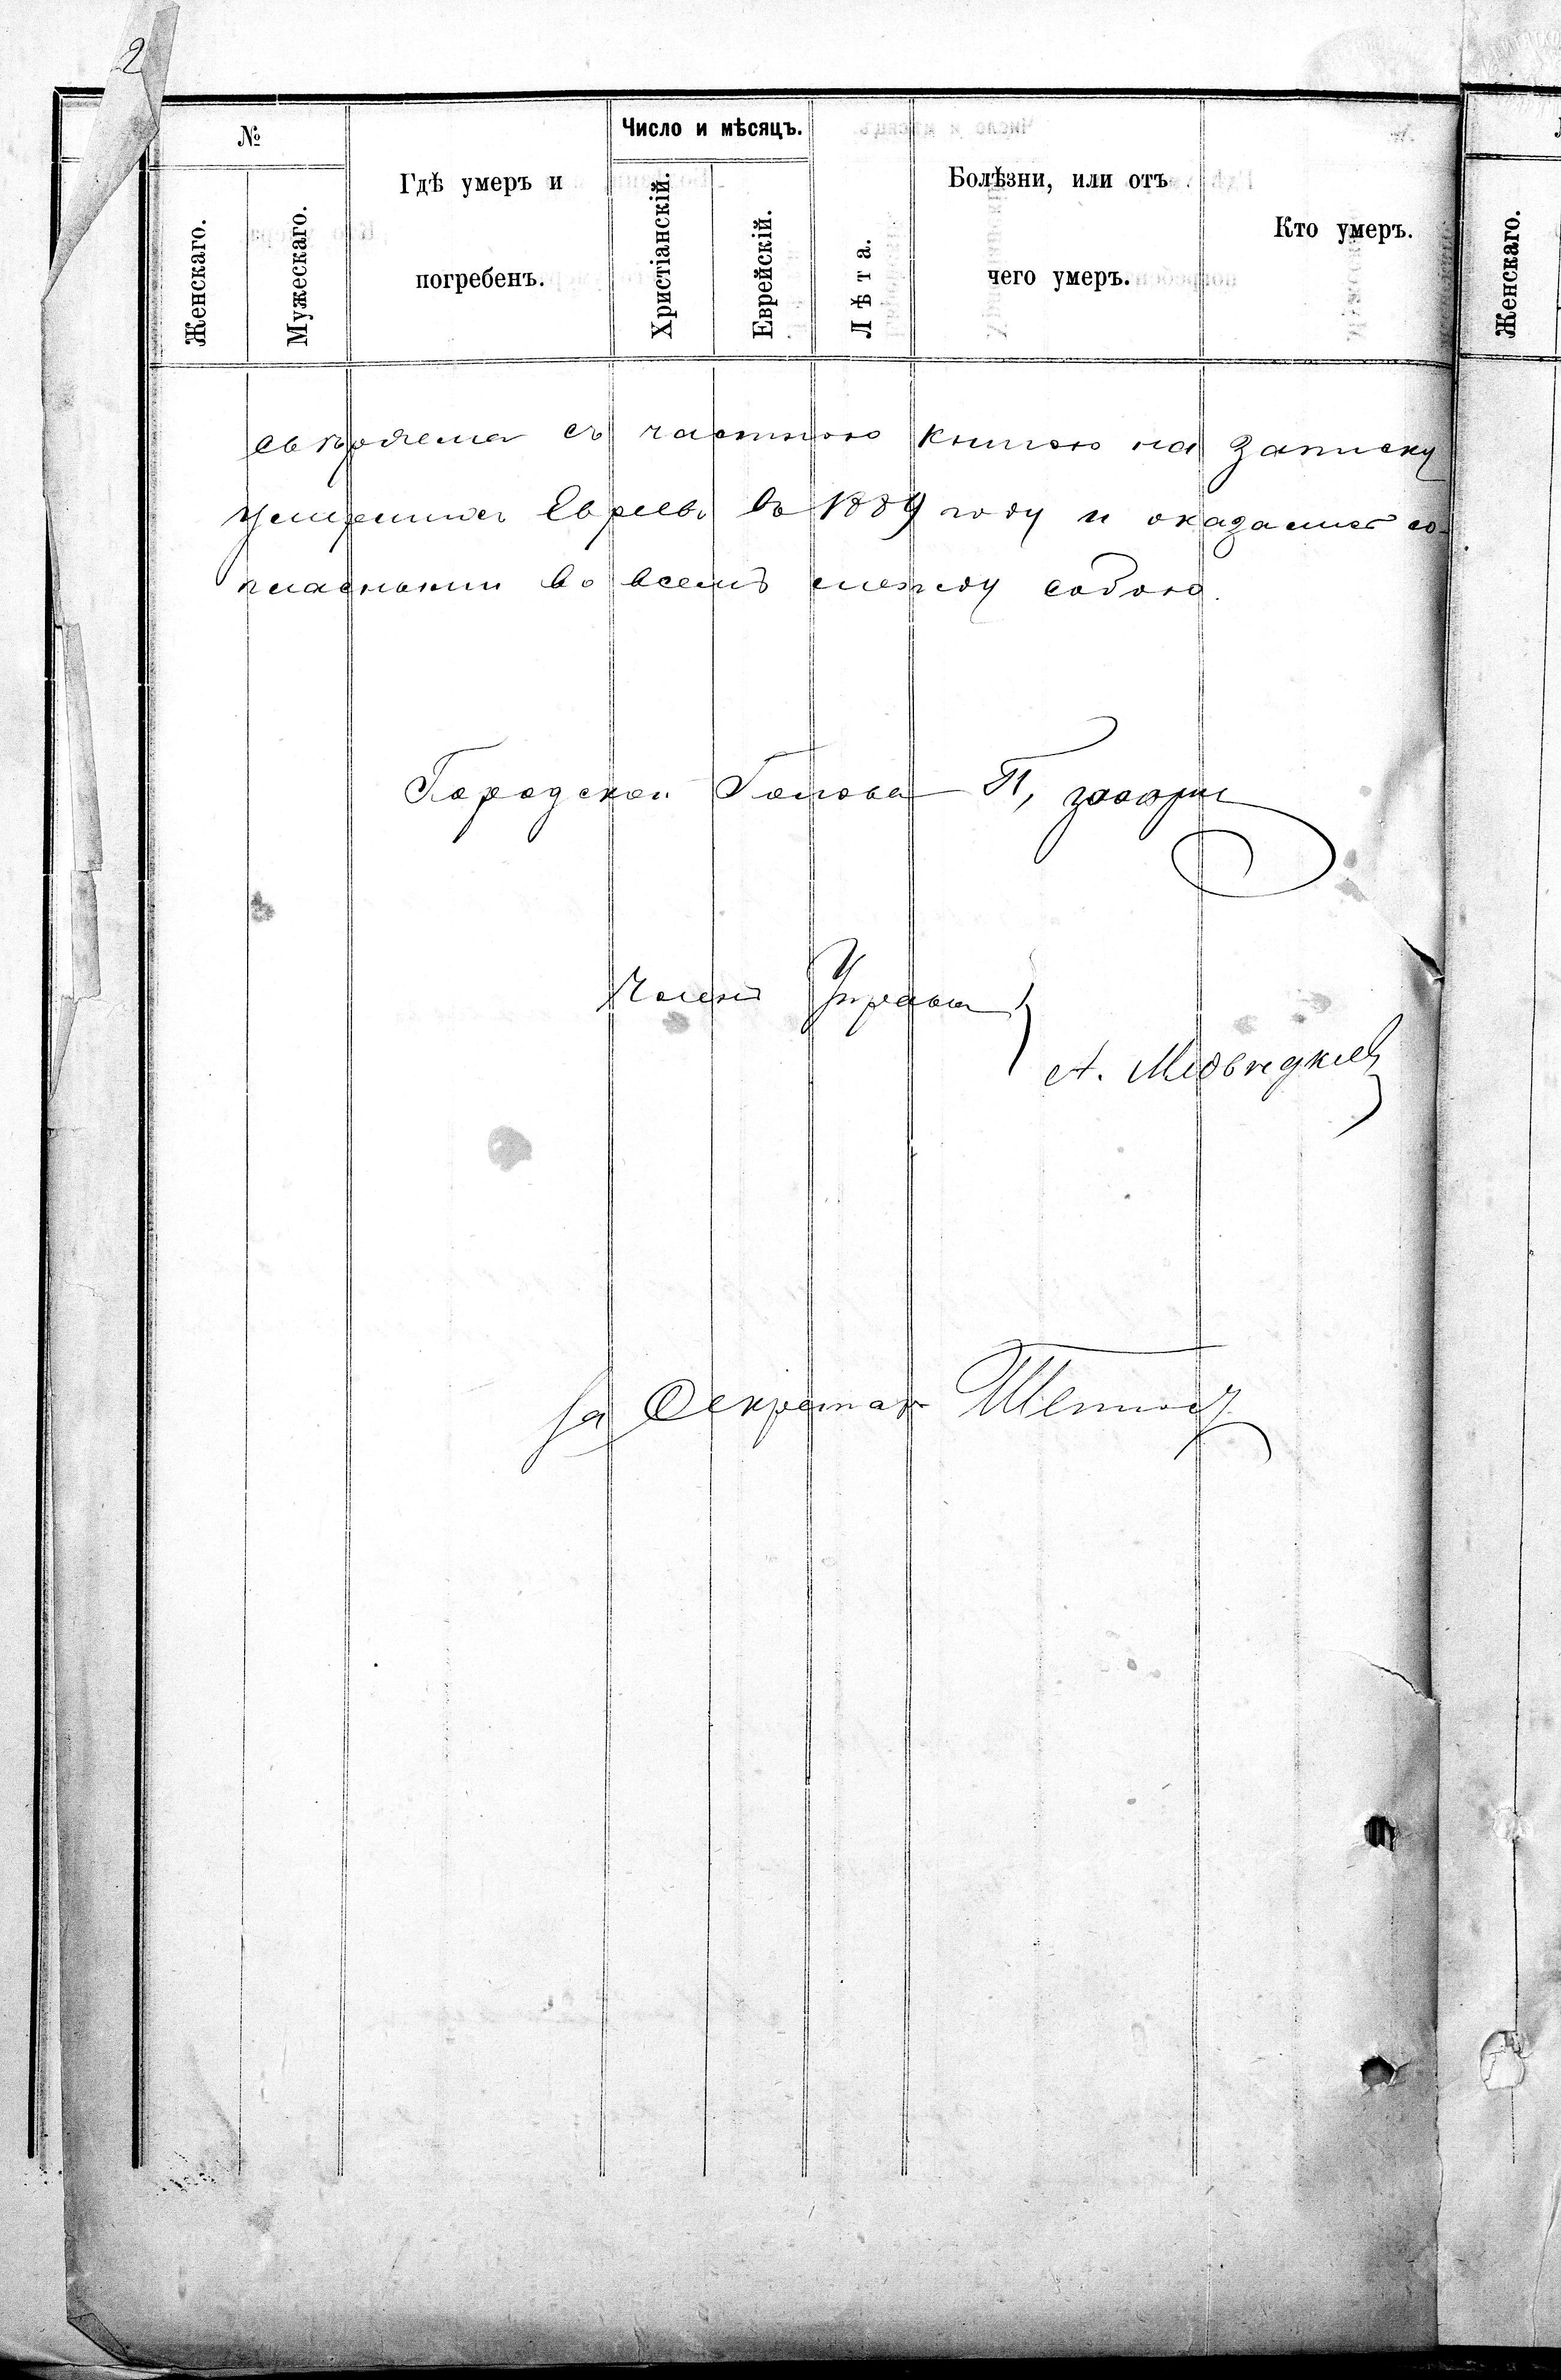 2
№
Женскаго.
Мужескаго.
Гдѣ умеръ и
погребенъ.
Число и мѣсяцъ.
Христіанскій.
Еврейскій.
Лѣта.
Болѣзни, или отъ
чего умеръ.
Кто умеръ.
Женскаго.
съ частною книгою на записку
умершихъ Евреевъ въ 1889 году и оказались со-
гласными во всемъ между собою.
Городской Голова П,
Членъ Управы
А. Медвѣдковъ
За Секретаря